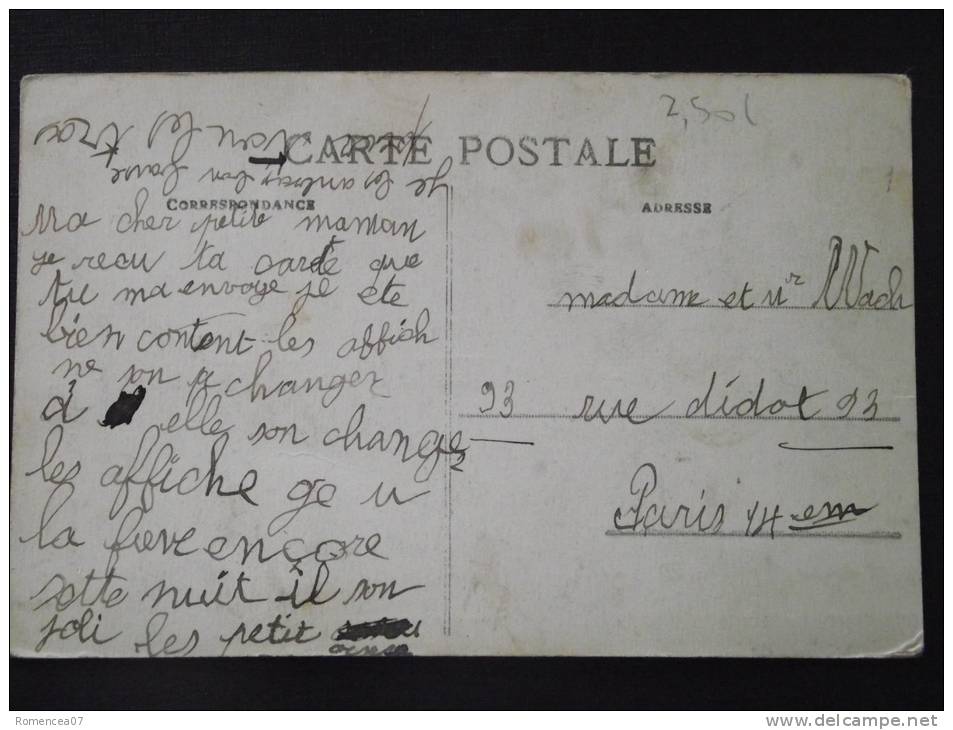 2,50
CARTE POSTALE
CORRESPONDANCE
ADRESSE
Ma cher petite maman
je recu ta carte que
tu ma envoye je ete
bien content les affich
ne son pa changer
à elle son changer
les affiche ge u
la fievre encore
sette nuit il son
joli les petit
madame et Mr Wach
93 rue didot 93
Paris 14 em
Romencea07
www.delcampe.net